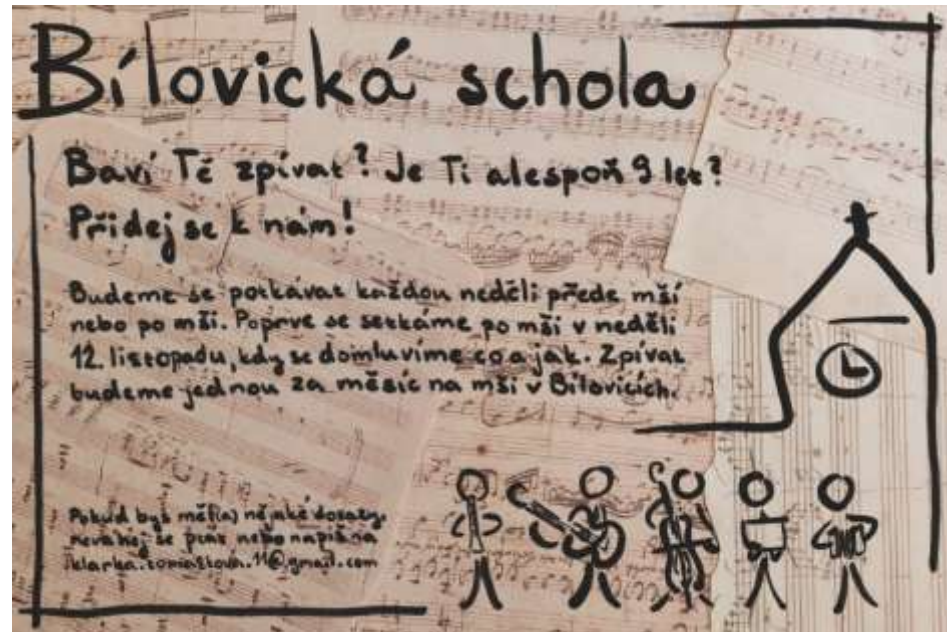 Bílovická schola
Baví Tě zpívat? Je Ti alespoň 9 let?
Přidej se k nám!
Budeme se potkávat každou neděli přede mší
nebo po mši. Poprve se setkáme po mši v neděli
12. listopadu, kdy se domluvíme co a jak. Zpívat
budeme jednou za měsíc na mši v Bílovicích.
Pokud bys měl(a) nějaké dotazy,
neváhej se ptát nebo napiš na
klarka.tomastova.11@gmail.com